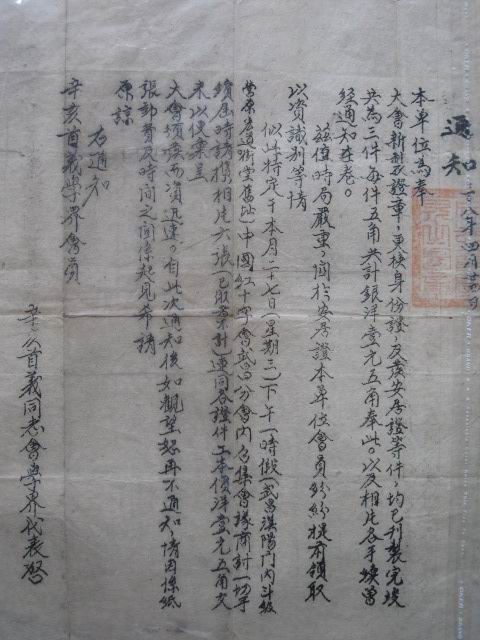 通知
卅八年四月廿四日
本單位為奉
大會新制證章，更換身份證，及發安居證等件，均已刊製完竣
共為三件每件五角共計銀洋壹元五角奉此。以及相片各手續曾
經通知在卷。
茲值時局嚴重，關於安居證本單位會員紛紛提前領取
以資識別等情
似此特定于本月二十七日(星期三)下午一時假(武昌漢陽門內斗級
營原省道街堂舊址)中國紅十字會武昌分會內召集會樣商討一切手
續屆時請攜相片六張(已收者不計)連同各證件工本價洋壹元五角交
來以便彙呈
大會頒發而資迅達。自此次通知後如觀望恕再不通知情因係紙
張郵費及時間之關係起見希請
原諒
右通知
辛亥首義學界會員
辛亥首義同志會學界代表啓